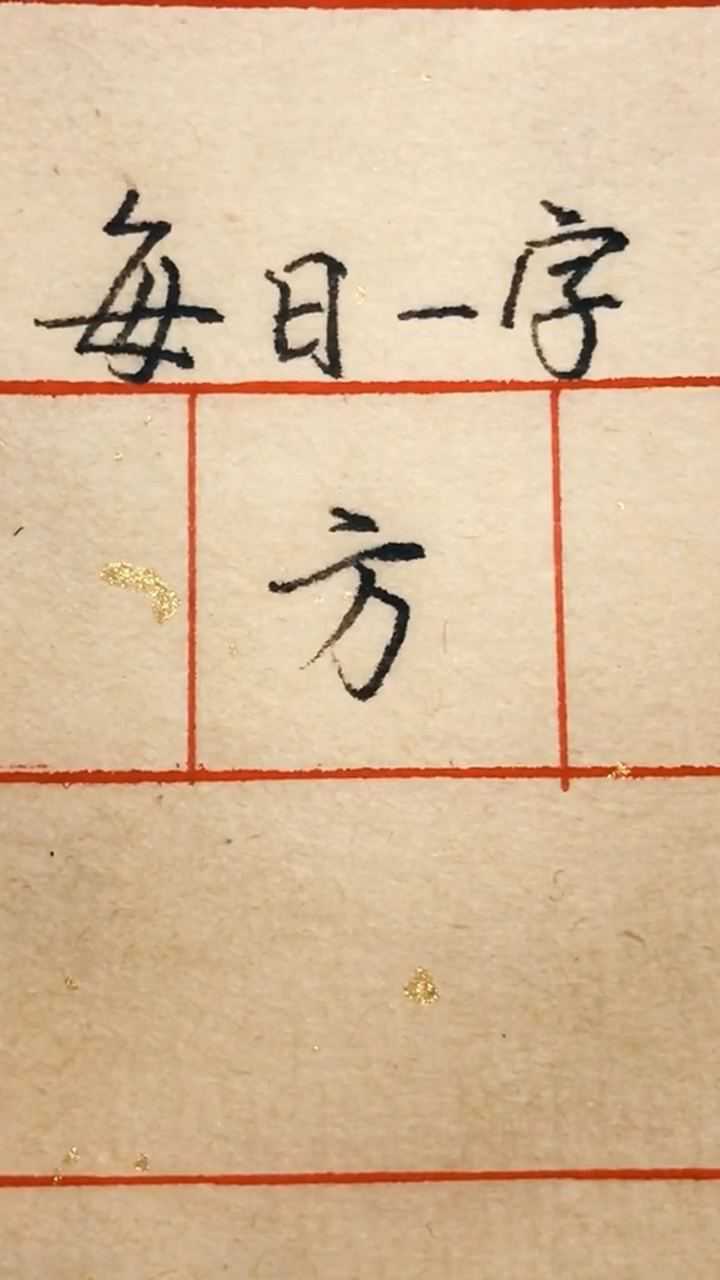 每日一字
方